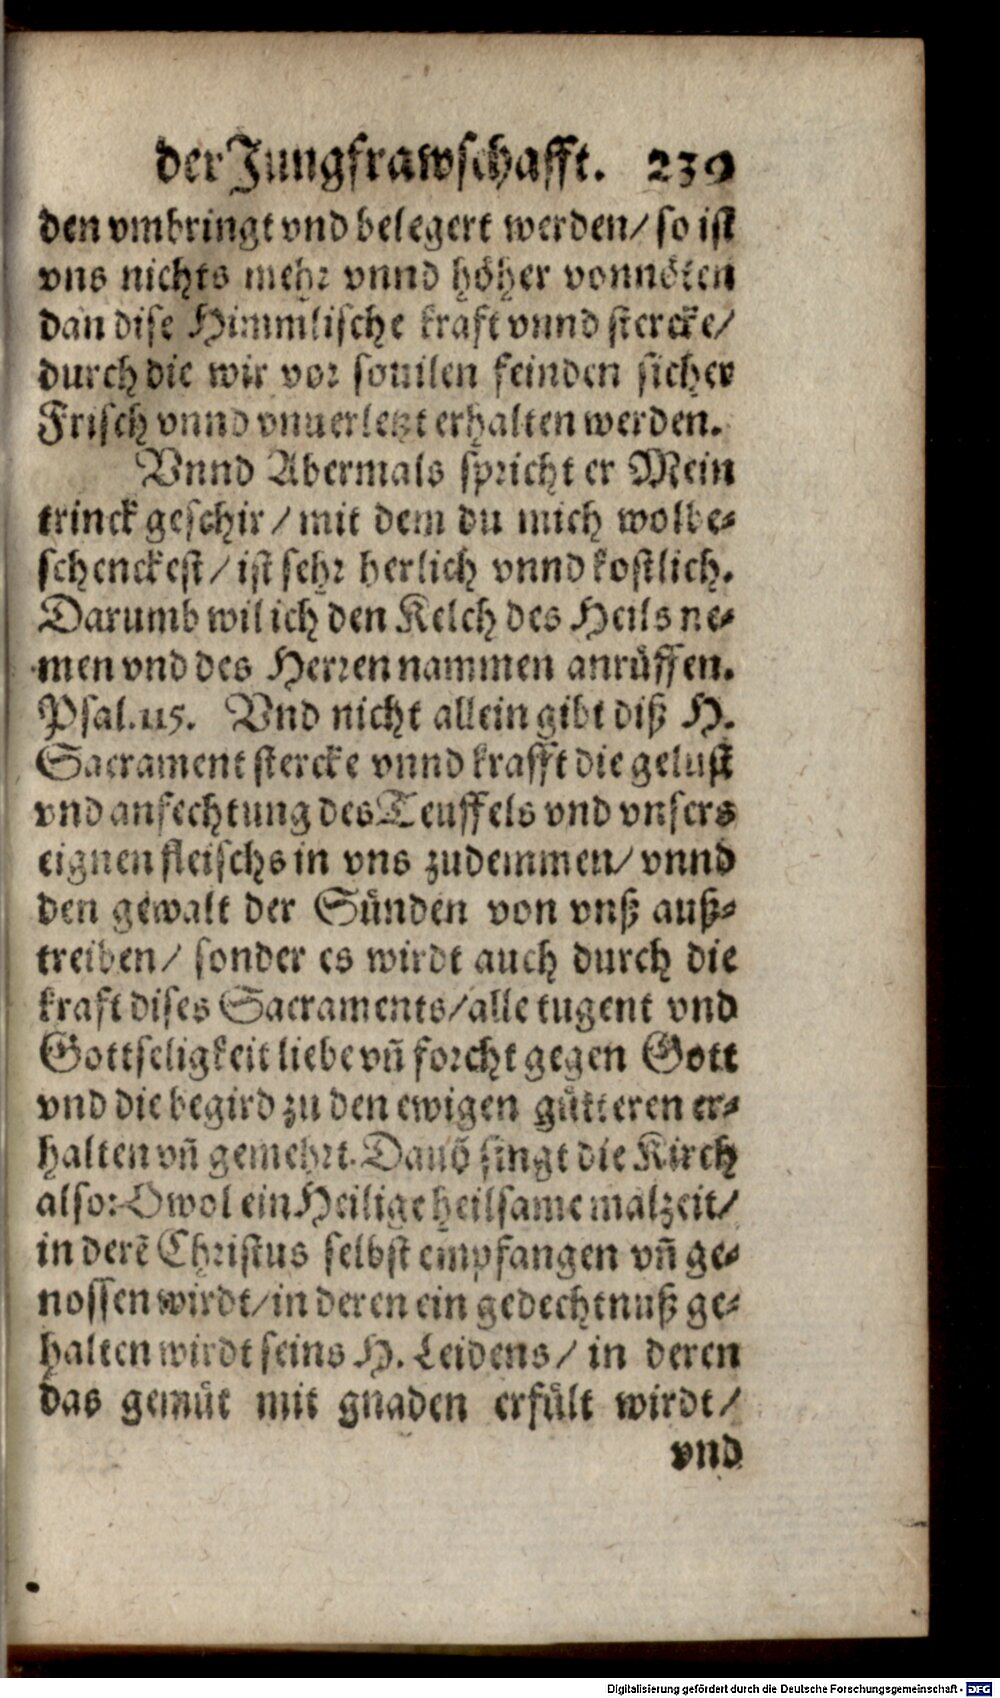 der Jungfrawschafft. 239
den vmbringt vnd belegert werden/ so ist
vns nichts mehr vnnd höher vonnöten
dan dise Himmlische kraft vnnd stercke/
durch die wir vor souilen feinden sicher
Frisch vnnd vnuerletzt erhalten werden.
Vnnd Abermals spricht er Mein
trinck geschir / mit dem du mich wolbe⸗
schenckest / ist sehr herlich vnnd kostlich.
Darumb wil ich den Kelch des Heils ne⸗
men vnd des Herren nammen anrůffen.
Psal. 115. Vnd nicht allein gibt diß H.
Sacrament stercke vnnd krafft die gelust
vnd anfechtung des Teuffels vnd vnsers
eignen fleischs in vns zudemmen/ vnnd
den gewalt der Sünden von vnß auß⸗
treiben/ sonder es wirdt auch durch die
kraft dises Sacraments/ alle tugent vnd
Gottseligkeit liebe vñ forcht gegen Gott
vnd die begird zu den ewigen gütteren er⸗
halten vñ gemehrt. singt die Kirch
also: O wol ein Heilige heilsame malzeit/
in derẽ Christus selbst empfangen vñ ge⸗
nossen wirdt/ in deren ein gedechtnuß ge⸗
halten wirdt seins H. Leidens/ in deren
das gemüt mit gnaden erfült wirdt/
vnd
Digitalisierung gefördert durch die Deutsche Forschungsgemeinschaft - DFG